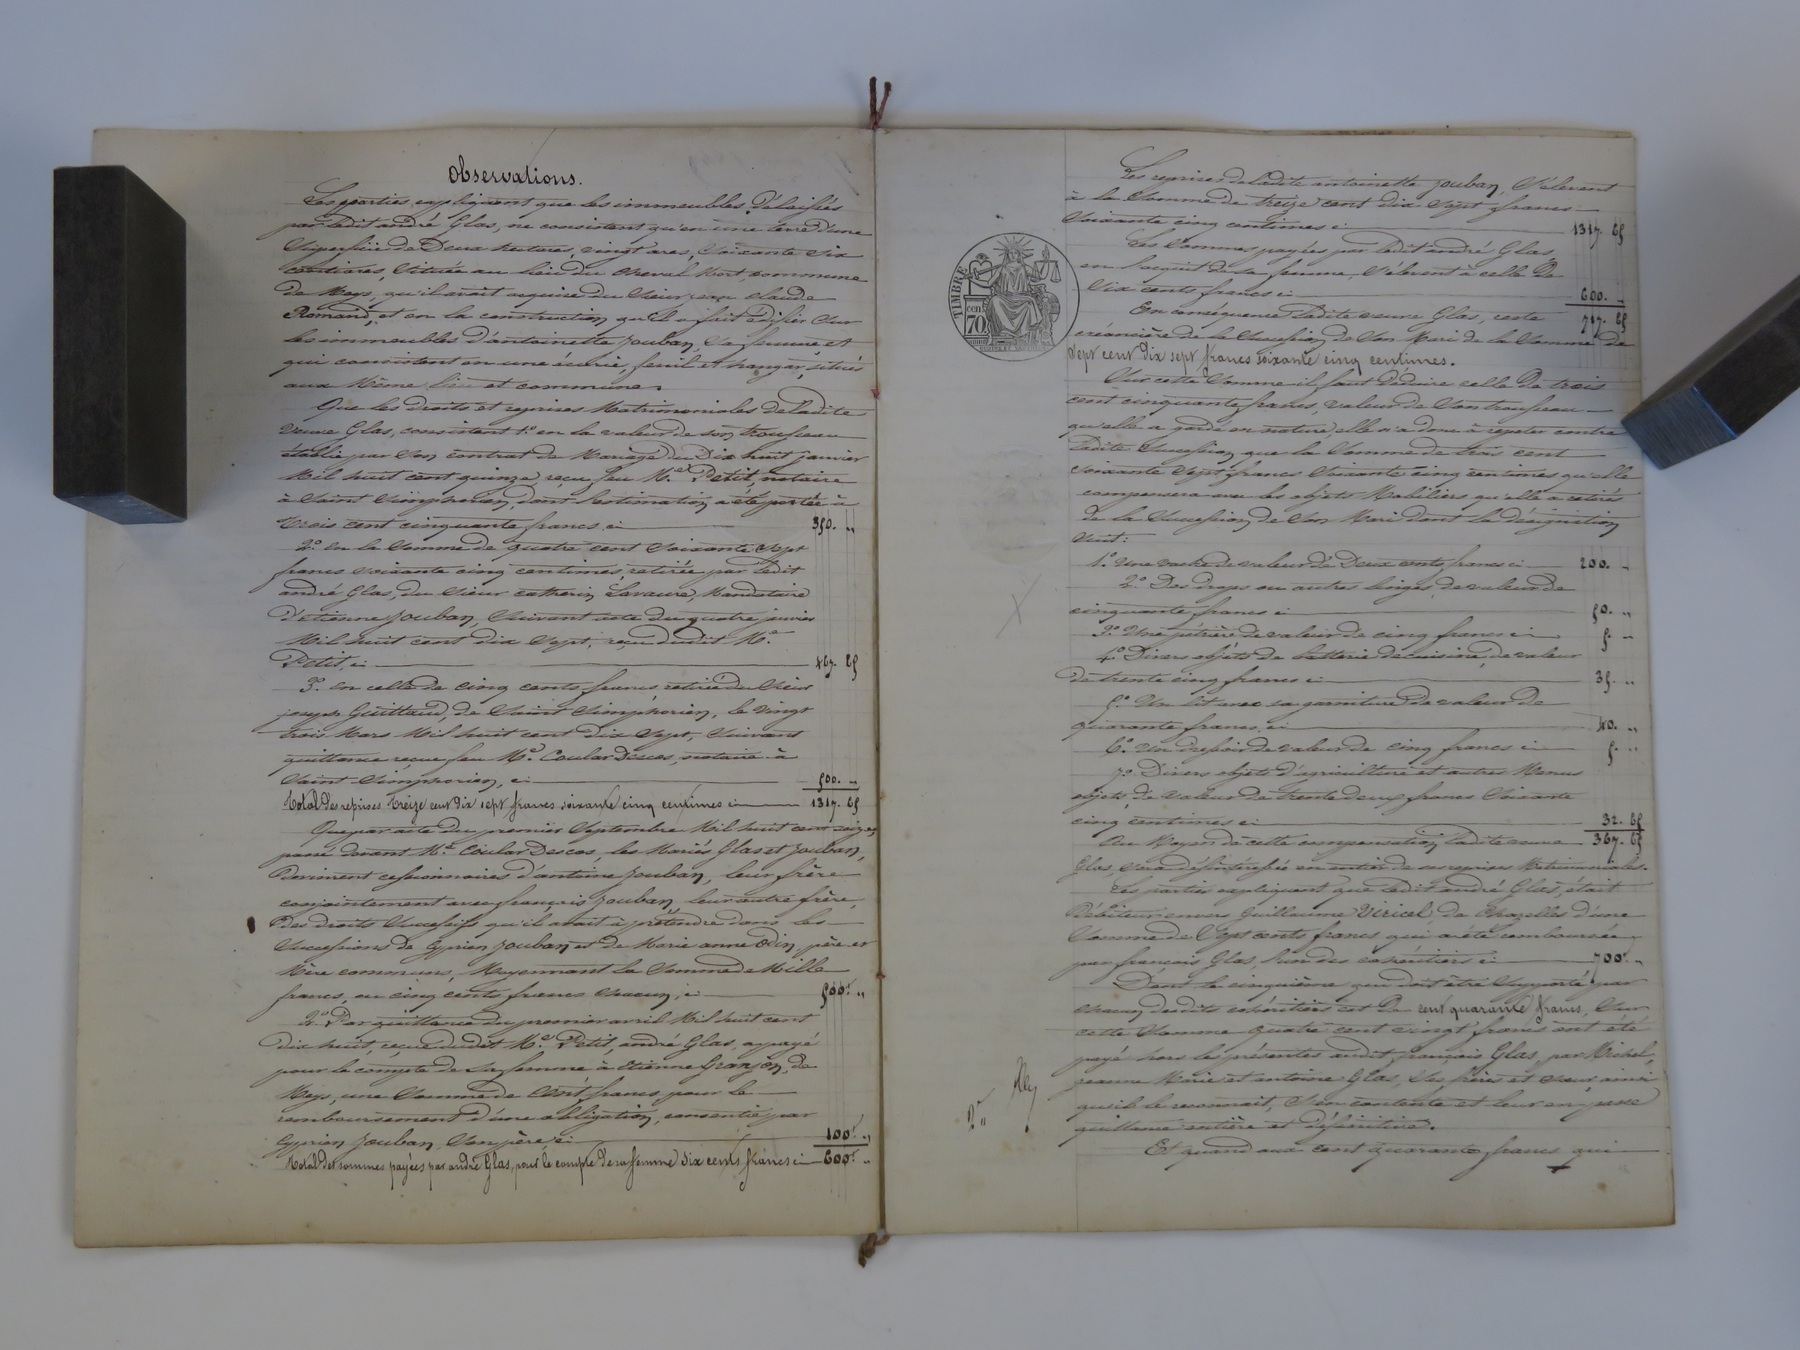 Observations.
Les parties expliquent que les immeubles délaissés
par ledit andré Glas, ne consistent qu'en une terre d'une
superficie de Deux hectares, vingt ares, soixante six
centiares, située au lieu du cheval Mort, commune
de Meys, qu'il avait acquise du sieur jean claude
Romand, et en la construction qu'il a fait édifier sur
les immeubles d'antoinette Jouban, sa femme, et
qui consistent en une écurie, fenil et hangar, situés
aux Même lieu et commune.
Que les droits et reprises Matrimoniales de ladite
veuve Glas, consistent 1.° en la valeur de son trousseau
établie par son contrat de Mariage du Dix huit janvier
Mil huit cent quinze, reçu feu M.e Petit, notaire
à Saint Simphorien, dont l'estimation a été portée à
trois cent cinquante francs ci 350. "
2.° en la somme de quatre cent soixante sept
francs soixante cinq centimes, retirée par ledit
andré Glas, du sieur catherin Lavaure, Mandataire
d'etienne Jouban, suivant acte du quatre janvier
Mil huit cent dix sept, reçu dudit M.e
Petit, ci 467. 65
3.° en celle de cinq cents francs retirée du sieur
joseph Guittaud, de Saint Simphorien, le vingt
trois Mars Mil huit cent dix sept, suivant
quittance reçue feu M.e Coular Descos, notaire à
Saint Simphorien, ci 500. "
Total des reprises treize cent dix sept francs soixante cinq centimes ci 1317. 65
Que par acte du premier septembre Mil huit cent seize,
passé devant M.e Coular Descos, les Mariés Glas et Jouban,
Devinrent cessionnaires d'antoine Jouban, leur frère
conjointement avec françois Jouban, leur autre frère,
Des droits successifs qu'il avait à prétendre dans les
successions de Cyprien Jouban et de Marie anne Odin, père et
Mère communs, Moyennant la somme de Mille
francs, ou cinq cents francs chacun, ci 500.f "
2.° Par quittance du premier avril Mil huit cent
dix huit, reçue dudit M.e Petit, andré Glas, a payé
pour le compte de sa femme à Etienne Granjon, de
Meys, une somme de Cent francs, pour le
remboursement d'une obligation, consentie par
Cyprien Jouban, son père ci 100.f "
Total des sommes payées par andré Glas, pour le compte de sa femme six cents francs ci 600.f "
Les reprises de ladite antoinette Jouban, s'élèvent
à la somme de treize cent dix sept francs
soixante cinq centimes ci 1317. 65
Les sommes payées par ledit andré Glas,
en l'acquit de sa femme, s'élèvent à celle de
six cents francs ci 600. "
En conséquence ladite veuve Glas, reste 717. 65
créancière de la succession de son Mari de la somme de
sept cent dix sept francs soixante cinq centimes.
Sur cette somme il faut déduire celle de trois
cent cinquante francs, valeur de son trousseau
qu'elle a gardé en nature, elle n'a donc à répéter contre
ladite succession que la somme de trois cent
soixante sept francs soixante cinq centimes qu'elle
compensera avec les objets Mobiliers qu'elle a retirés
de la succession de son Mari dont la désignation
suit:
1.° Une vache de valeur de Deux cents francs ci 200. "
2.° Des draps ou autres linges, de valeur de
cinquante francs ci 50. "
3.° Une pétrière de valeur de cinq francs ci 5. "
4.° Divers objets de batterie de cuisine, de valeur
de trente cinq francs ci 35. "
5.° Un lit avec sa garniture de valeur de
quarante francs, ci 40. "
6.° Un dressoir de valeur de cinq francs ci 5. "
7.° Divers objets d'agriculture et autres Menus
objets, de valeur de trente deux francs soixante
cinq centimes ci 32. 65
Au Moyen de cette compensation ladite veuve 367. 65
Glas, sera désintéressée en entier de ses reprises Matrimoniales.
Les parties expliquent que ledit andré Glas, était
Débiteur envers Guillaume Viricel, de Chazelles d'une
somme de Sept cents francs qui a été remboursée
par françois Glas, l'un des cohéritiers ci 700.f "
Dont le cinquième qui doit être supporté par
chacun desdits cohéritiers est de cent quarante francs, sur
cette somme quatre cent vingt francs ont été
payé hors les présentes audit françois Glas, par Michel,
jeanne Marie et antoine Glas, ses frères et sœur ainsi
qu'il le reconnait, s'en contente et leur en passe
quittance entière et définitive.
Et quand aux cent quarante francs qui
TIMBRE
70 cent